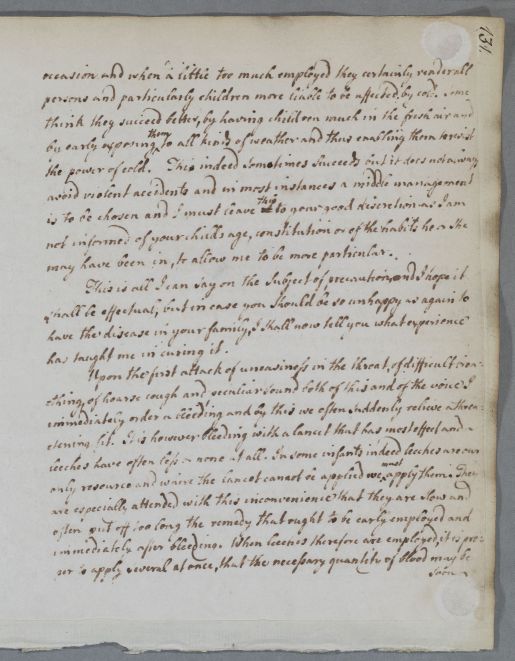 131.
occasion and when a little too much employed they certainly render all
persons and particularly children more liable to be affected by cold. Some
think they succeed better, by having children much in the fresh air and
by early exposing them to all kinds of weather and thus enabling them to resist
the power of cold. This indeed sometimes succeeds but it does not always
avoid violent accidents and in most instances a middle management
is to be chosen and I must leave this to your good discretion as I am
not informed of your child's age, constitution or of the habits he or she
may have been in, to allow me to be more particular.
This is all I can say on the subject of precaution, and I hope it
shall be effectual, but in case you should be so unhappy as again to
have the disease in your family, I shall now tell you what experience
has taught me in curing it.
Upon the first attack of uneasiness in the throat, of difficult brea-
thing, of hoarse cough and peculiar sound both of this and of the voice I
immediately order a bleeding and by this we often suddenly relieve a threa-
tening fit. It is however bleeding with a lancet that has most effect and
leeches have often less or none at all. In some infants indeed leeches are our
only resource and where the lancet cannot be applied we must apply them. They
are especially attended with this inconvenience that they are slow and
often put off too long the remedy that ought to be early employed and
immediately after bleeding. When leeches therefore are employed, it is pro-
per to apply several at once, that the necessary quantity of blood may be
soon